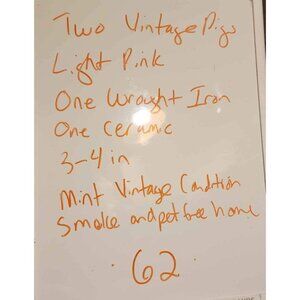 Two Vintage Pigs
Light Pink
One Wrought Iron
One Ceramic
3-4 in
Mint Vintage Condition
Smoke and pet free home
62